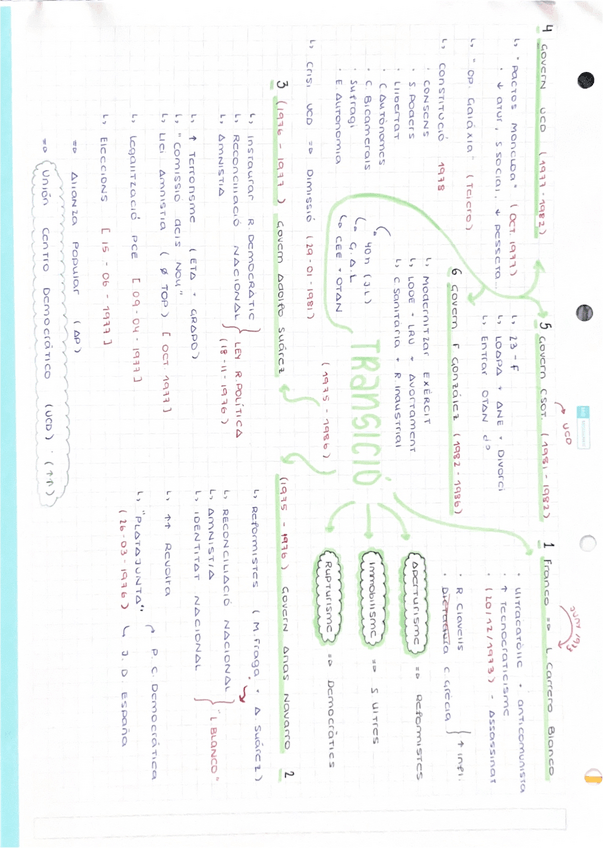 TRANSICIÓ
(1975 - 1986)
Aperturisme => Reformistes
Immobilisme => S Ultres
Rupturisme => Democràtics
1 Franco => L Carrero Blanco
Juny 1973
· Ultracatòlic + anticomunista
· ↑ Tecnocraticisme
· (20/12/1973) - Assassinat
· R Clavells
· Dictadura C Grècia } ↑ Infl.
(1975 - 1976) Govern Arias Navarro 2
↳ Reformistes (M. Fraga + A Suárez)
↳ RECONCILIACIÓ NACIONAL
↳ AMNISTIA
↳ IDENTITAT NACIONAL
} "L BLANCO"
↳ ↑↑ Revolta
↳ "PLATAJUNTA"
(26-03-1976)
P. C Democrática
J. D. España
3 (1976 - 1977) Govern Adolfo Suárez
↳ Instaurar R. Democràtic
↳ Reconciliació Nacional
↳ Amnistia
} LEY R. POLÍTICA
(18-11-1976)
↳ ↑ Terrorisme (ETA + GRAPO)
↳ "Comissió dels Nou"
↳ Llei Amnistia (Ø TOP) [OCT 1977]
↳ Legalització PCE [09-04-1977]
↳ Eleccions [15-06-1977]
=> Alianza Popular (AP)
=> Unión Centro Democrático (UCD)
4 Govern UCD (1977-1982)
↳ "Pactos Moncloa" (OCT. 1977)
· ↓ atur, S social, ↓ pesseta...
↳ "Op. Galàxia" (Tejero)
↳ CONSTITUCIÓ 1978
· CONSENS
· S Poders
· Llibertat
· C Autònomes
· C. Bicamerals
· Sufragi
· E Autonomia
↳ Crisi UCD => Dimissió (29-01-1981)
5 Govern CSOT. (1981-1982)
UCD
↳ 23-F
↳ LOAPA + ANE + Divorci
↳ Entrar OTAN
6 Govern F González (1982-1986)
↳ Modernitzar EXÈRCIT
↳ LODE + LRU + Avortament
↳ C Sanitària + R. Industrial
G.A.L
CEE + OTAN